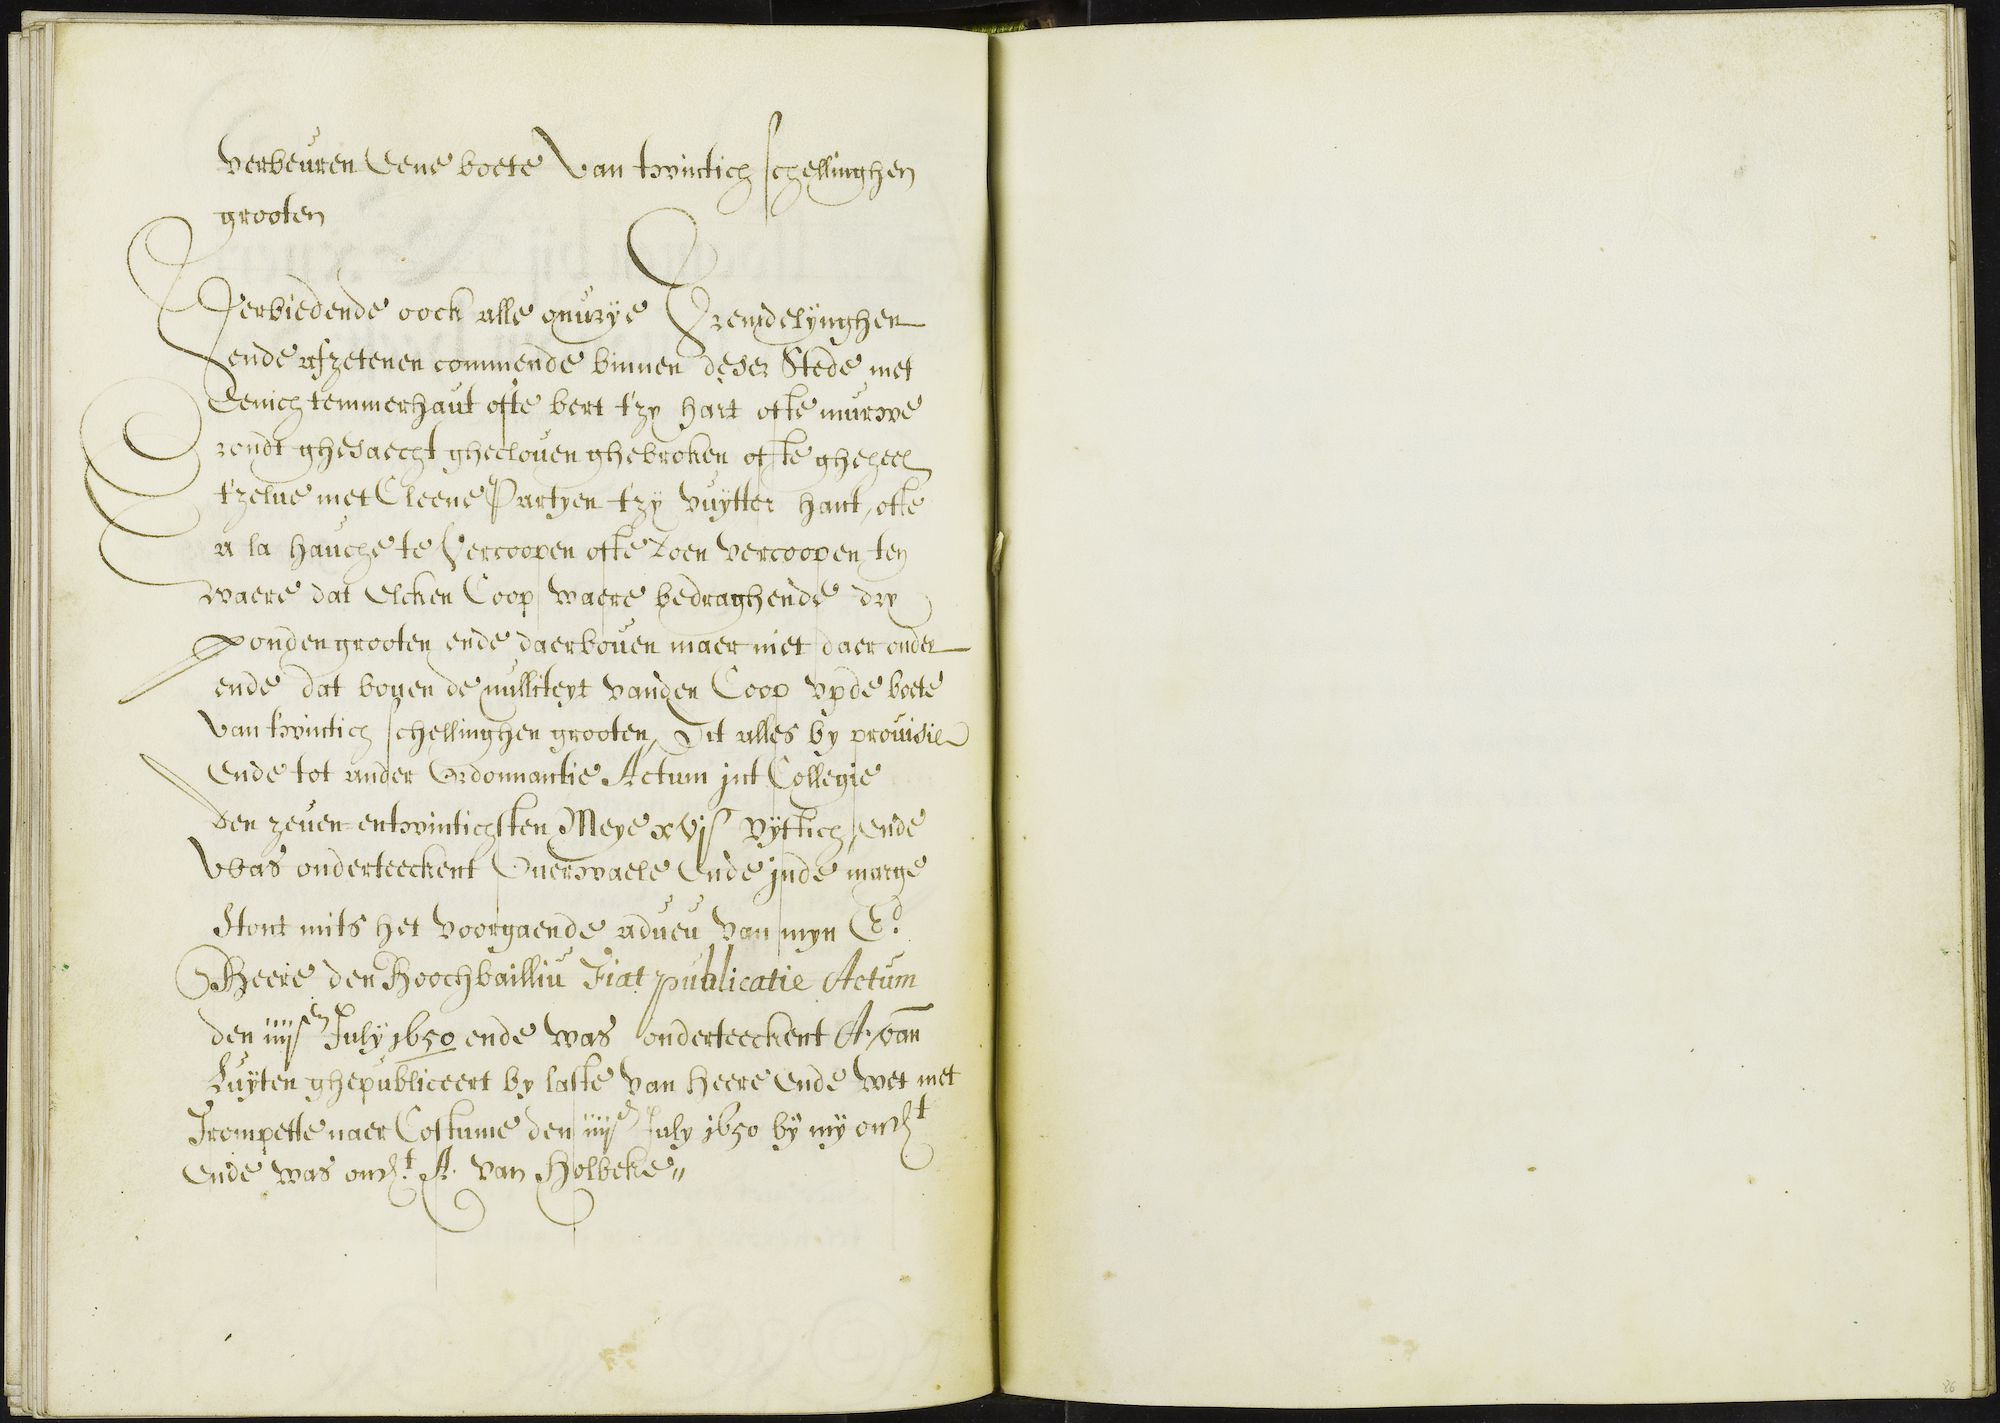 verbeuren Eene boete van twintich schellinghen
grooten
Verbiedende oock alle onurÿe Vremdelÿnghen
ende afzetenen commende binnen deser Stede met
Eenich temmerhaut ofte bert t'zy hart ofte murwe
rondt ghesaecht ghecloven ghebroken ofte gheheel
t'zelve met Cleene Partyen t'zÿ vuÿtter hant, ofte
a la hauche te Vercoopen ofte doen vercoopen ten
waere dat Elcken Coop waere bedraghende dry
ponden grooten ende daerboven maer niet daer onder
ende dat boven de nulliteyt vanden Coop vp de boete
van twintich schellinghen grooten, Dit alles by provisie
Ende tot ander Ordonnantie Actum int Collegie
den zeven-entwintichsten Meye xvjs vÿftich, Ende
Was onderteeckent Overwaele Ende inde marge
Stont mits het voorgaende adveu van myn Ed.
Heere den Hoochbailliu Fiat publicatie Actum
den iiijen July 1650 ende was onderteeckent A. van
Luÿten ghepubliceert by laste van heere Ende wet met
Trompette naer Costume den iiije July 1650 bÿ mÿ ondt
Ende was ondt. A. van Holbeke //
86